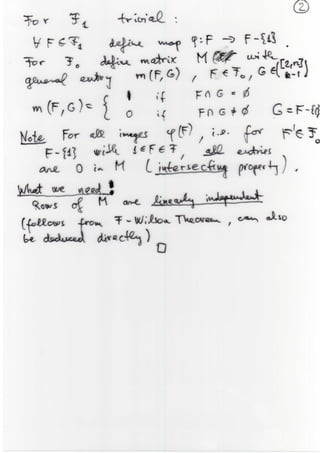 ②
For F₁ trivial :
∀ F ∈ F₁ define map φ: F → F-{1}.
For F₀ define matrix M with
general entry m(F,G), F ∈ F₀, G ∈ ([2,n] k-1)
m(F,G) = { 1 if F ∩ G = ∅
0 if F ∩ G ≠ ∅ G = F-{1}
Note For all images φ(F), i.e. for F' ∈ F₀
F-{1} with 1 ∈ F ∈ F, all entries
are 0 in M (intersecting property).
What we need!
Rows of M are linearly independent
(follows from F-Wilson Theorem, can also
be deduced directly)
□